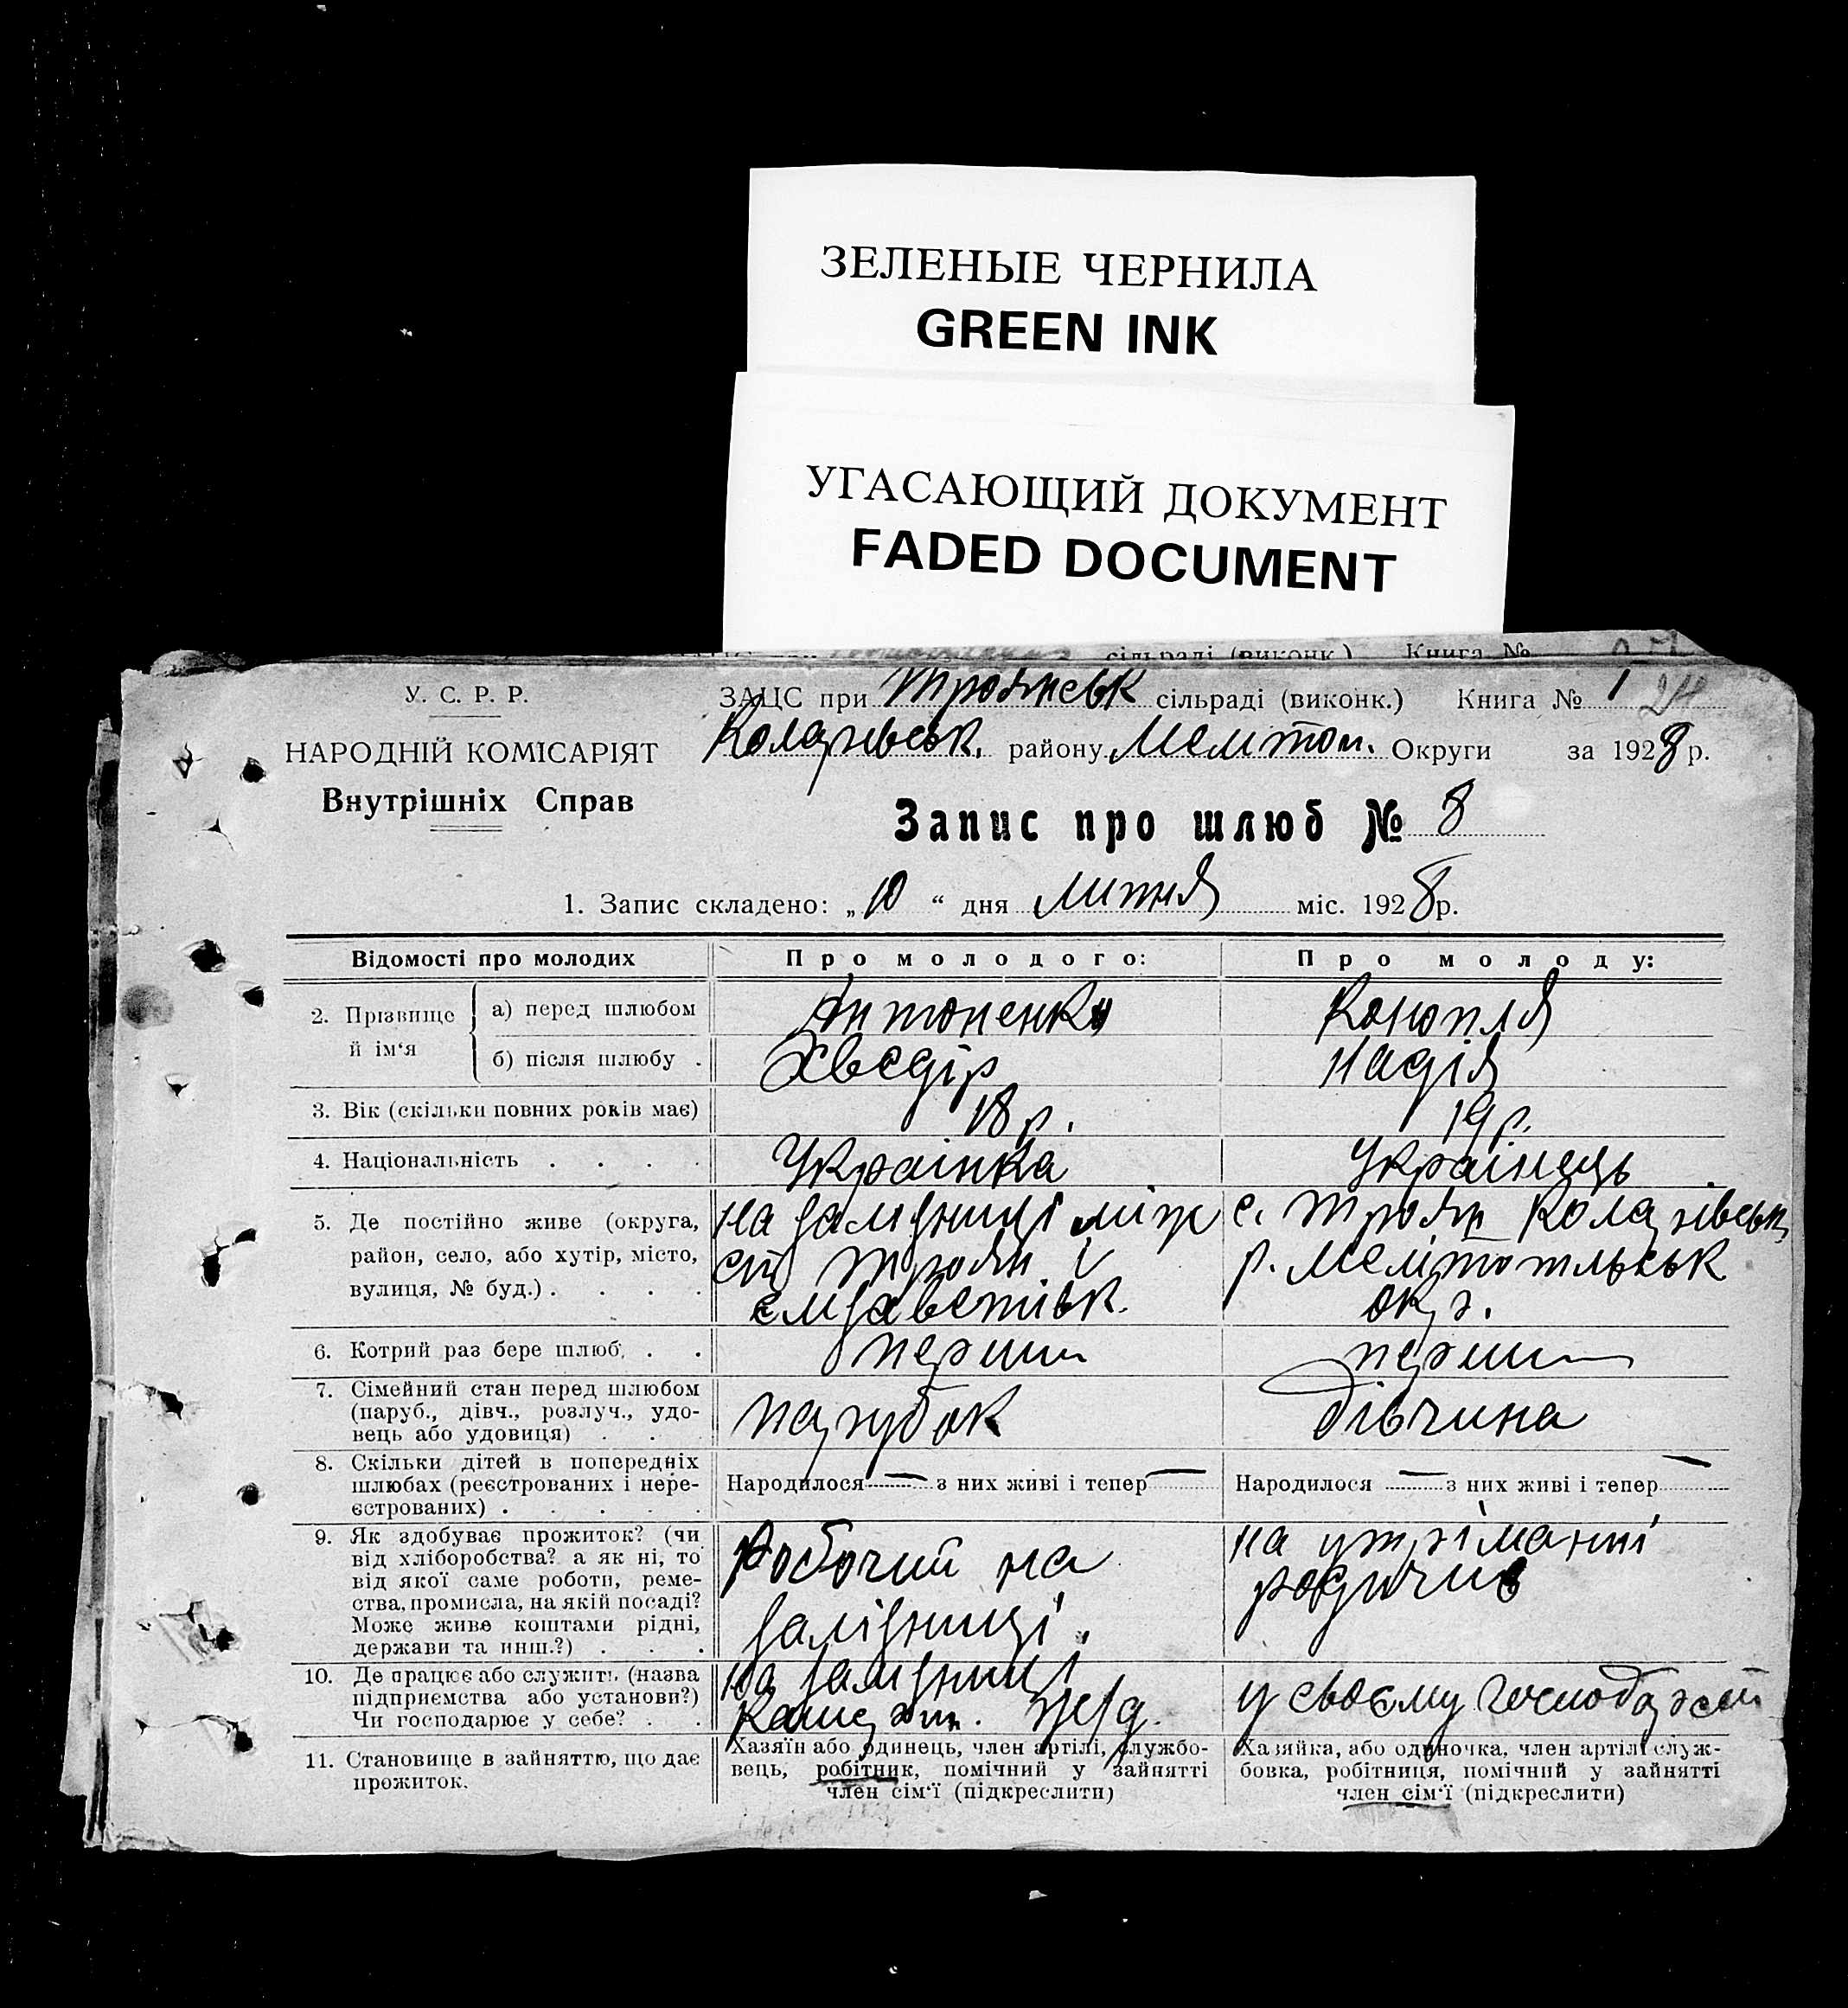 ЗЕЛЕНЫЕ ЧЕРНИЛА
GREEN INK
УГАСАЮЩИЙ ДОКУМЕНТ
FADED DOCUMENT
сільраді (виконк.) Книга №
У. С. Р. Р.
ЗАЦС при Троянськ сільраді (виконк.) Книга № 1
НАРОДНІЙ КОМІСАРІЯТ
Коларівськ. району Мелітоп. Округи за 1928 р.
Внутрішніх Справ
Запис про шлюб № 8
1. Запис складено: „10“ дня Липня міс. 1928 р.
Відомості про молодих
Про молодого:
Про молоду:
2. Прізвище й ім‘я
а) перед шлюбом
Антоненко
Конопля
б) після шлюбу .
Хведір
Надія
3. Вік (скільки повних років має)
18 р.
19 р.
4. Національність . . . .
Українка
Українець
5. Де постійно живе (округа,
район, село, або хутір, місто,
вулиця, № буд.) . . . .
на залізниці між
ст Троян і
Єлізаветівк.
с. Троян Коларівськ
р. Мелітопільськ
окр.
6. Котрий раз бере шлюб. . .
перши
перши
7. Сімейний стан перед шлюбом
(паруб., дівч., розлуч., удо-
вець або удовиця) . .
парубок
дівчина
8. Скільки дітей в попередніх
шлюбах (реєстрованих і нере-
єстрованих) . . . . .
Народилося — з них живі і тепер —
Народилося — з них живі і тепер —
9. Як здобуває прожиток? (чи
від хліборобства? а як ні, то
від якої саме роботи, реме-
ства, промисла, на якій посаді?
Може живе коштами рідні,
держави та инш.?) . . .
Робочий на
залізниці.
на утріманні
родичив
10. Де працює або служить (назва
підприємства або установи?)
Чи господарює у себе? . .
на залізниці
у своєму господарсті
11. Становище в зайняттю, що дає
прожиток.
Хазяїн або одинець, член артілі, службо-
вець, робітник, помічний у зайнятті
член сім‘ї (підкреслити)
Хазяйка, або одиночка, член артілі служ-
бовка, робітниця, помічний у зайнятті
член сім‘ї (підкреслити)